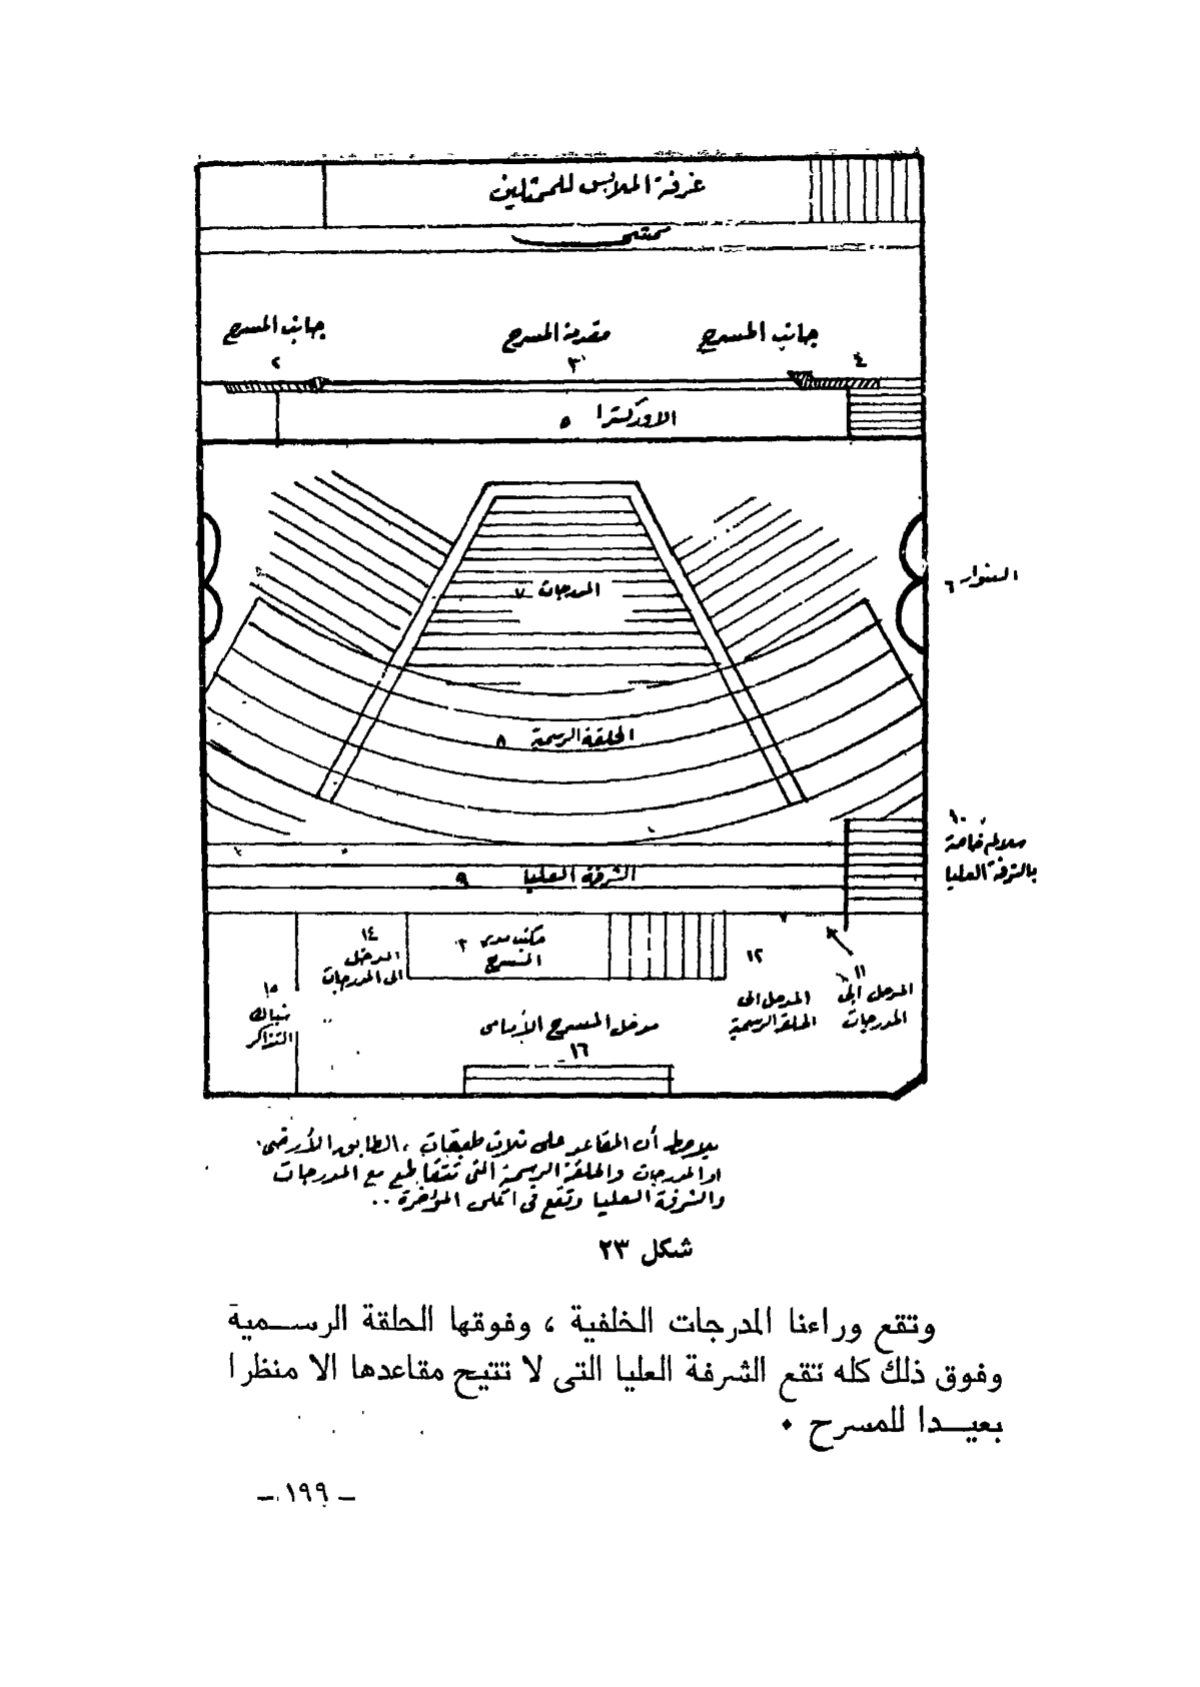 غرفة الملابس للممثلين
ممشى
جانب المسرح
٤
مقدمة المسرح
٣
جانب المسرح
٢
الاوركسترا ٥
البنوار ٦
المدرجات ٧
الحلقة الرسمية ٨
١٠
سلالم خاصة
بالشرفة العليا
الشرفة العليا ٩
١١
المدخل إلى
المدرجات
١٢
المدخل الى
الحلقة الرسمية
مكتب مدير
المسرح
١٤
المدخل
الى المدرجات
١٥
شباك
التذاكر
مدخل المسرح الأمامى
١٦
يلاحظ أن المقاعد على ثلاث طبقات ، الطابق الأرضى
او المدرجات والحلقة الرسمية التى تتقاطع مع المدرجات
والشرفة العليا وتقع فى اعلى المؤخرة ..
شكل ٢٣
وتقع وراءنا المدرجات الخلفية ، وفوقها الحلقة الرســمية
وفوق ذلك كله تقع الشرفة العليا التى لا تتيح مقاعدها الا منظرا
بعيــدا للمسرح ٠
ــ ١٩٩ ــ